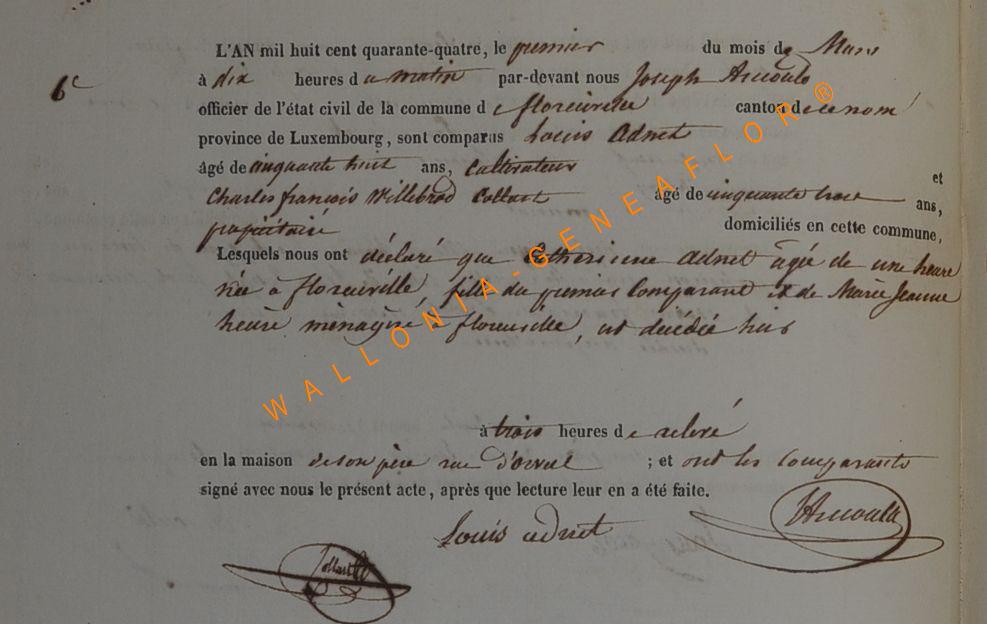 6e
L'AN mil huit cent quarante-quatre, le premier du mois de Mars
à dix heures du matin par-devant nous Joseph Arnould
officier de l'état civil de la commune de florenville canton de ce nom
province de Luxembourg, sont comparus Louis Adnet
âgé de cinquante huit ans, cultivateur et
Charles françois Willebrod Collart âgé de cinquante trois ans,
propriétaire domiciliés en cette commune,
Lesquels nous ont déclaré que Catherienne Adnet âgée de une heure
née à florenville, fille du premier Comparant et de Marie Jeanne
heure ménagère à florenville, est décédée hier
à trois heures de relevé
en la maison de son père rue d'orval ; et ont les Comparants
signé avec nous le présent acte, après que lecture leur en a été faite.
Louis adnet
Arnould
Collart
WALLONIA-GENEAFLOR®